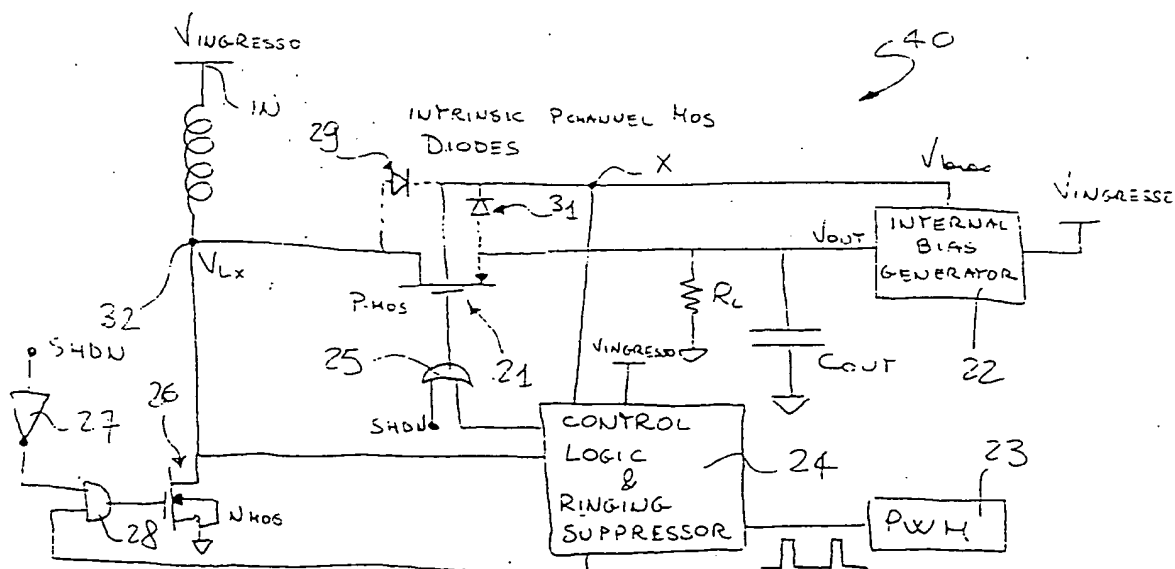 VINGRESSO
40
IN
INTRINSIC PCHANNEL MOS
DIODES
29
X
31
VINGRESSO
VOUT
INTERNAL
BIAS
GENERATOR
VLX
P-MOS
RL
32
SHDN
25
21
VINGRESSO
COUT
22
27
26
SHDN
CONTROL
LOGIC
&
RINGING
SUPPRESSOR
24
23
28
NMOS
PWM